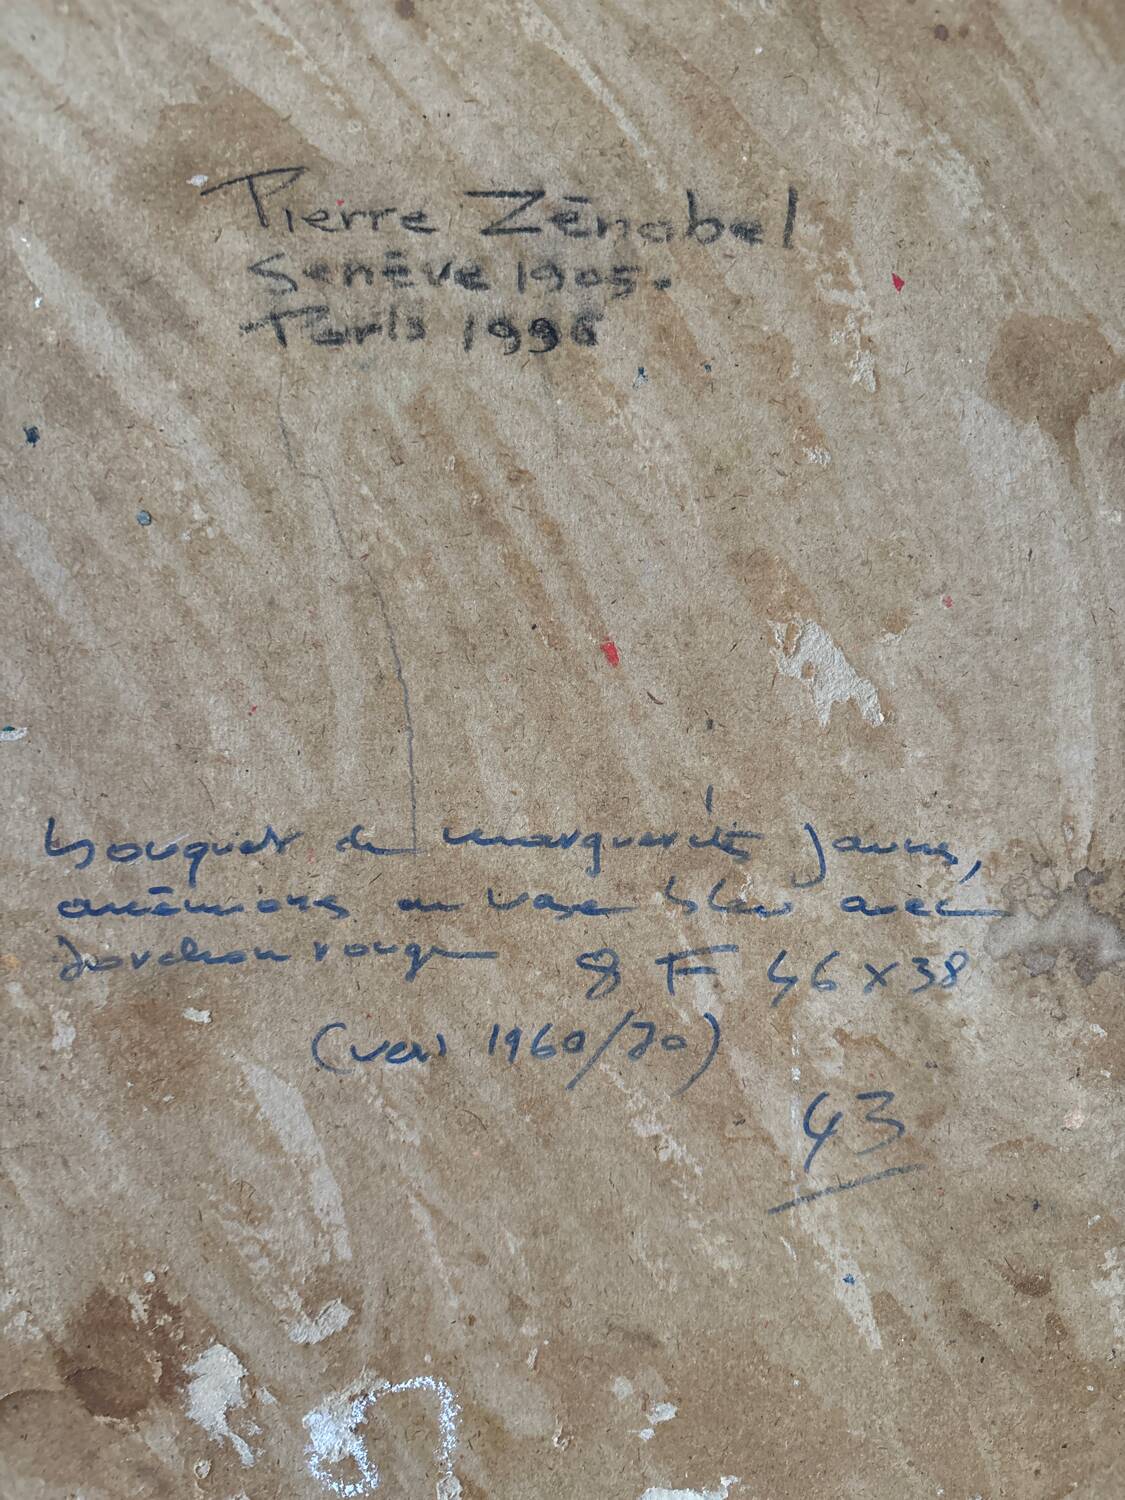 Pierre Zénobel
Genève 1905.
Paris 1996
bouquet de marguerites jaunes,
anémones au vase bleu avec
torchon rouge 8 F 46 x 38
(vers 1960/70)
43